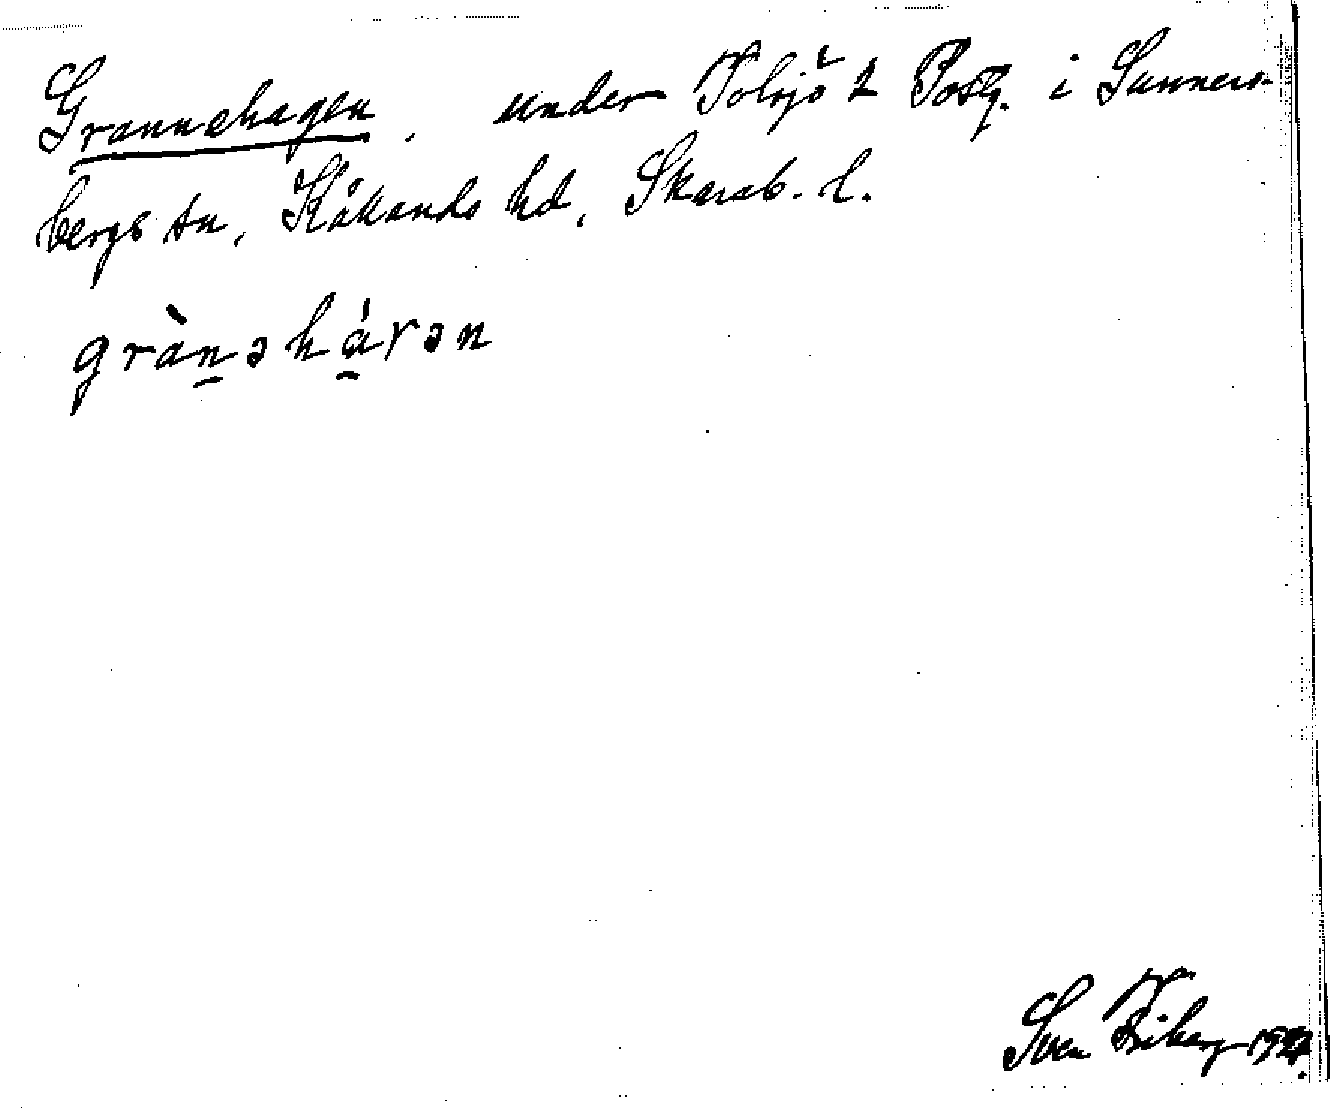 Grannehagen, under Tolsjö 2 Postg. i Sunners-
bergs sn, Kållands hd, Skarab. l.
grànəhá̱γən
Sven Friberg 192